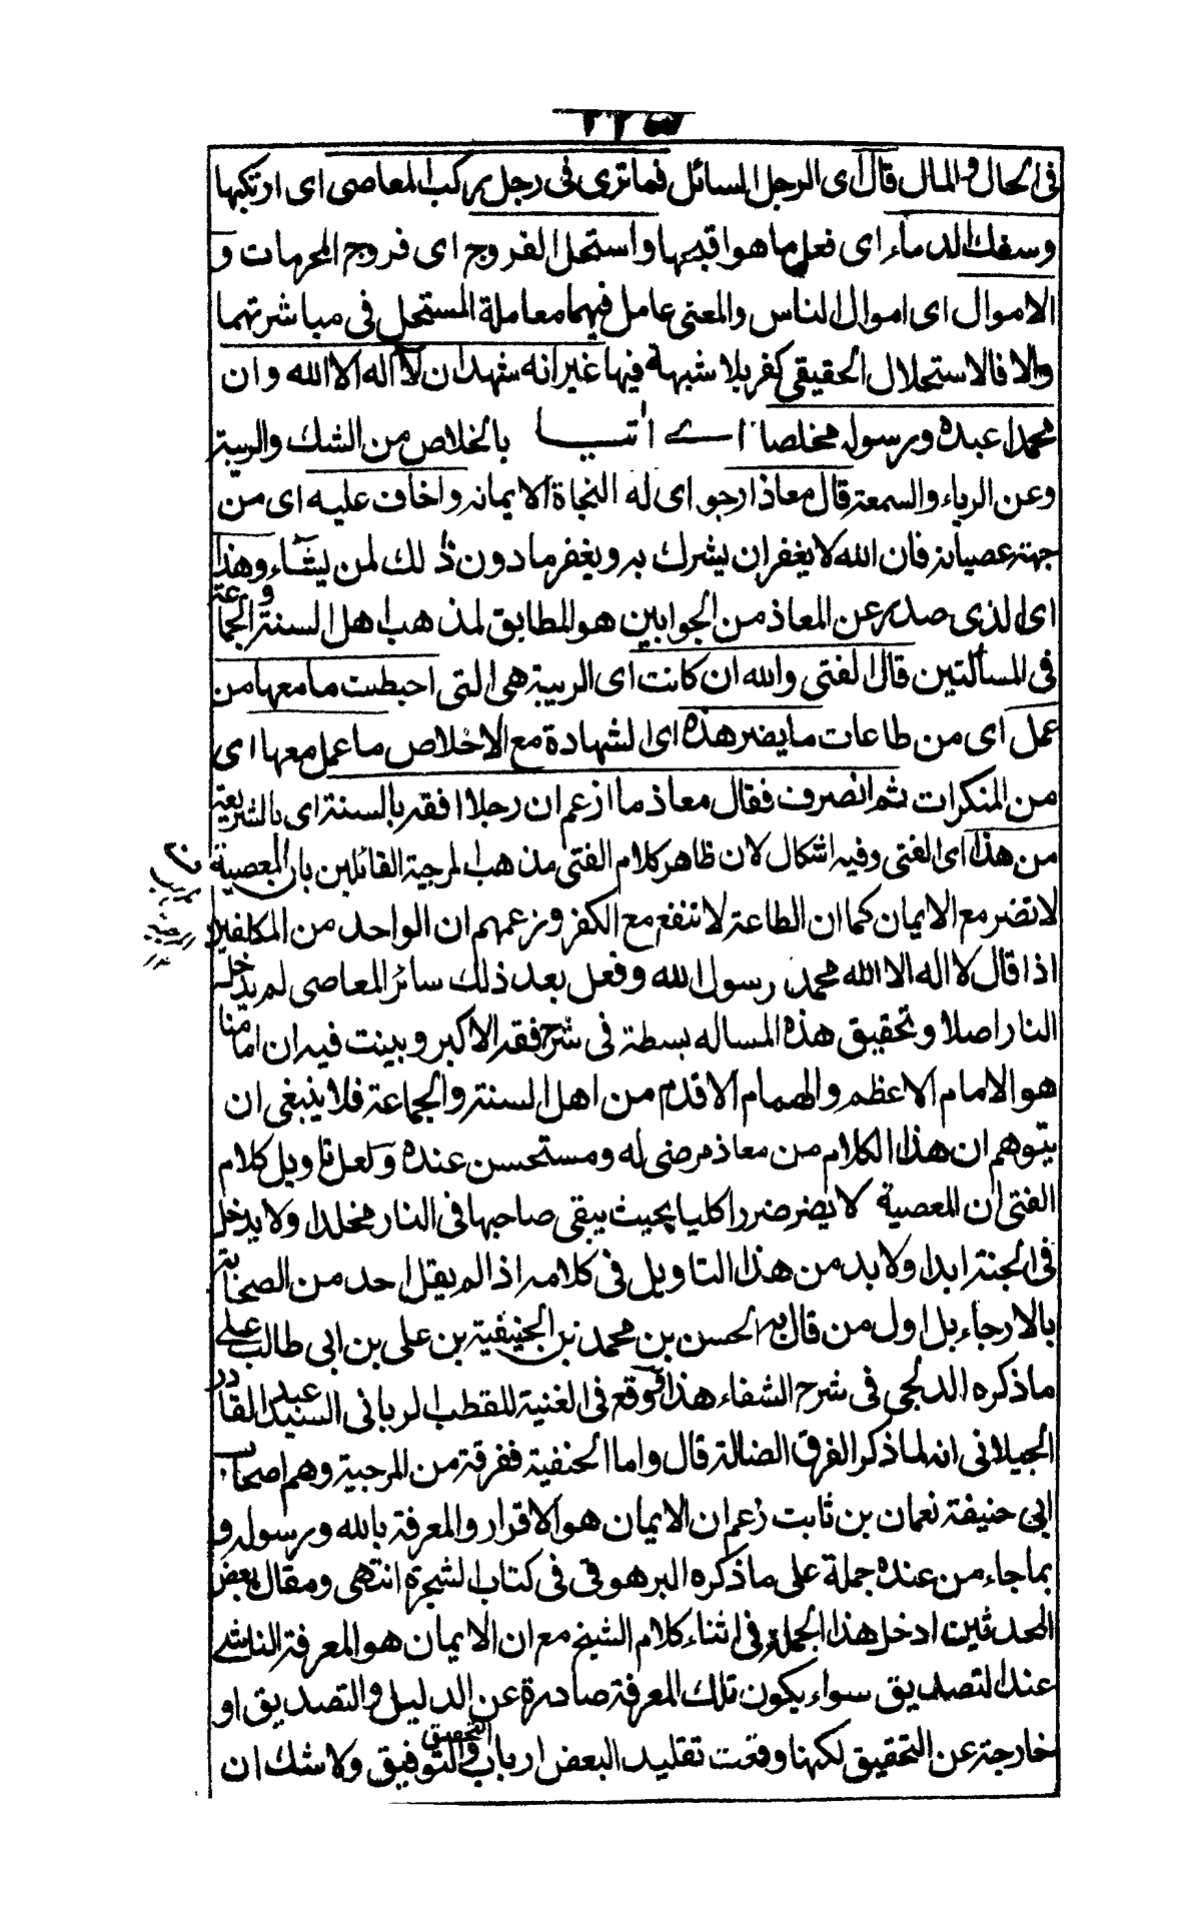 ٢٢٣
فى الحال والمال قال اى الرجل السائل فما ترى فى رجل يركب المعاصى اى ارتكبها
وسفك الدماء اى فعل ما هو اقبحها واستحل الفروج اى فروج المحرمات و
الاموال اى اموال الناس والمعنى عامل فيهما معاملة المستحل فى مباشرتهما
والا فالاستحلال الحقيقى كفر بلا شبهة فيها غير انه شهد ان لا اله الا الله وان
محمدا عبده ورسوله مخلصا اے اتيا بالخلاص من الشك والريبة
وعن الرياء والسمعة قال معاذ ارجو اى له النجاة لايمانه واخاف عليه اى من
جهة عصيانه فان الله لا يغفر ان يشرك به ويغفر ما دون ذلك لمن يشاء وهذا
اى الذى صدر عن المعاذ من الجوابين هو المطابق لمذهب اهل السنة والجماعة
فى المسألتين قال الفتى والله ان كانت اى الريبة هى التى احبطت ما معها من
عمل اى من طاعات ما يضر هذه اى الشهادة مع الاخلاص ما عمل معها اى
من المنكرات ثم انصرف فقال معاذ ما ازعم ان رجلا افقه بالسنة اى بالشريعة
من هذا اى الفتى وفيه اشكال لان ظاهر كلام الفتى مذهب المرجية القائلين بان المعصية
لا تضر مع الايمان كما ان الطاعة لا تنفع مع الكفر وزعمهم ان الواحد من المكلفين
اذا قال لا اله الا الله محمد رسول الله وفعل بعد ذلك سائر المعاصى لم يدخل
النار اصلا وتحقيق هذه المساله بسطة فى شرح فقه الاكبر وبينت فيه ان امامنا
هو الامام الاعظم والهمام الاقدم من اهل السنة والجماعة فلا ينبغى ان
يتوهم ان هذا الكلام من معاذ مرضى له ومستحسن عنده ولعل تاويل كلام
الفتى ان المعصية لا يضر ضررا كليا بحيث يبقى صاحبها فى النار مخلدا ولا يدخل
فى الجنة ابدا ولابد من هذا التاويل فى كلامه اذ لم يقل احد من الصحابة
بالارجاء بل اول من قال به الحسن بن محمد بن الحنيفية بن على بن ابى طالب علے
ما ذكره الدلجى فى شرح الشفاء هذا وقع فى الغنية للقطب الربانى السيد عبد القادر
الجيلانى انه لما ذكر الفرق الضالة قال واما الحنفية ففرقة من المرجية وهم اصحاب
ابى حنيفة نعمان بن ثابت زعم ان الايمان هو الاقرار والمعرفة بالله ورسوله و
بما جاء من عنده جملة على ما ذكره البرهوقى فى كتاب الشجرة انتهى ومقال بعض
المحدثين ادخل هذا الجملة فى اثناء كلام الشيخ مع ان الايمان هو المعرفة الناشے
عند التصديق سواء يكون تلك المعرفة صادرة عن الدليل والتصديق او
خارجة عن التحقيق لكنها وقعت تقليد البعض ارباب التحقيق والتوفيق ولا شك ان